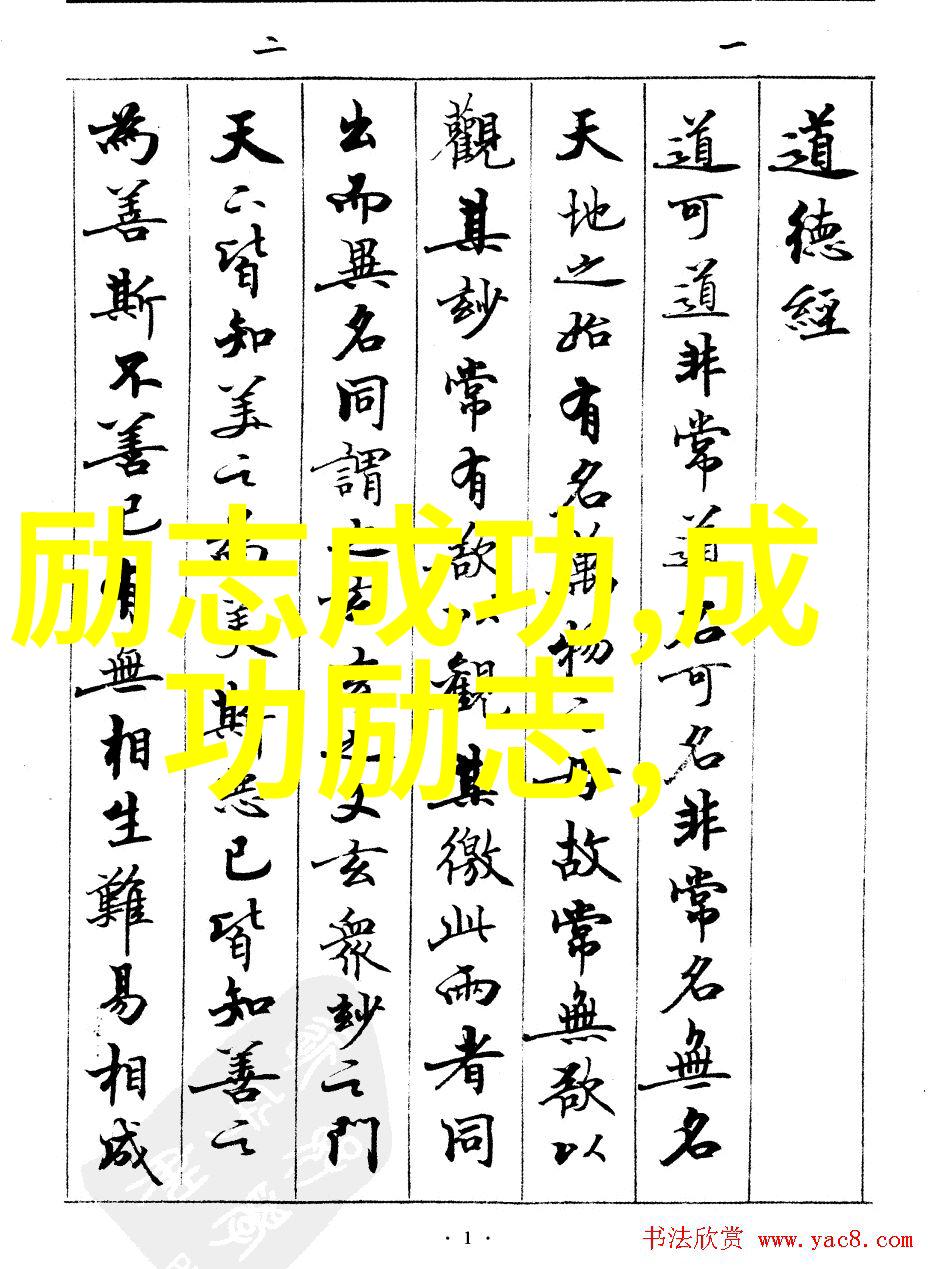 一
二
道德經
道可道非常道名可名非常名無名
天地之始有名萬物之母故常無欲以
觀其玅常有欲以觀其徼此兩者同
出而異名同謂之玄玄之又玄衆玅之門
天下皆知美之為美斯惡已皆知善之
為善斯不善已有無相生難易相成
励志成功,成
功励志,
· 1 ·
书法欣赏 www.yac8.com